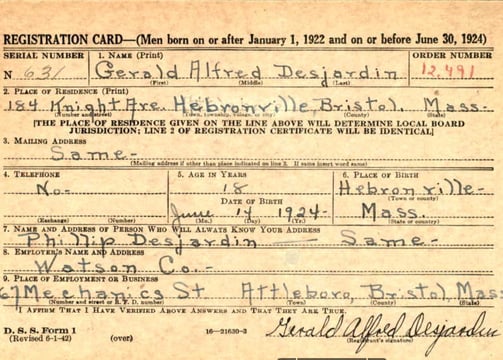 REGISTRATION CARD—(Men born on or after January 1, 1922 and on or before June 30, 1924)
SERIAL NUMBER 1. NAME (Print) ORDER NUMBER
N 631 Gerald Alfred Desjardin 12,491
(First) (Middle) (Last)
2. PLACE OF RESIDENCE (Print)
184 Knight Ave. Hebronville, Bristol, Mass-
(Number and street) (Town, township, village, or city) (County) (State)
[THE PLACE OF RESIDENCE GIVEN ON THE LINE ABOVE WILL DETERMINE LOCAL BOARD
JURISDICTION; LINE 2 OF REGISTRATION CERTIFICATE WILL BE IDENTICAL]
3. MAILING ADDRESS
Same-
(Mailing address if other than place indicated on line 2. If same insert word same)
4. TELEPHONE 5. AGE IN YEARS 6. PLACE OF BIRTH
No.- 18 Hebronville-
DATE OF BIRTH (Town or county)
June 14 1924- Mass.
(Exchange) (Number) (Mo.) (Day) (Yr.) (State or country)
7. NAME AND ADDRESS OF PERSON WHO WILL ALWAYS KNOW YOUR ADDRESS
Phillip Desjardin — Same-
8. EMPLOYER'S NAME AND ADDRESS
Watson Co.-
9. PLACE OF EMPLOYMENT OR BUSINESS
67 Mechanics St Attleboro, Bristol, Mass
(Number and street or R. F. D. number) (Town) (County) (State)
I AFFIRM THAT I HAVE VERIFIED ABOVE ANSWERS AND THAT THEY ARE TRUE.
D. S. S. Form 1 16—21630-2 Gerald Alfred Desjardin
(Revised 6-1-42) (over) (Registrant's signature)